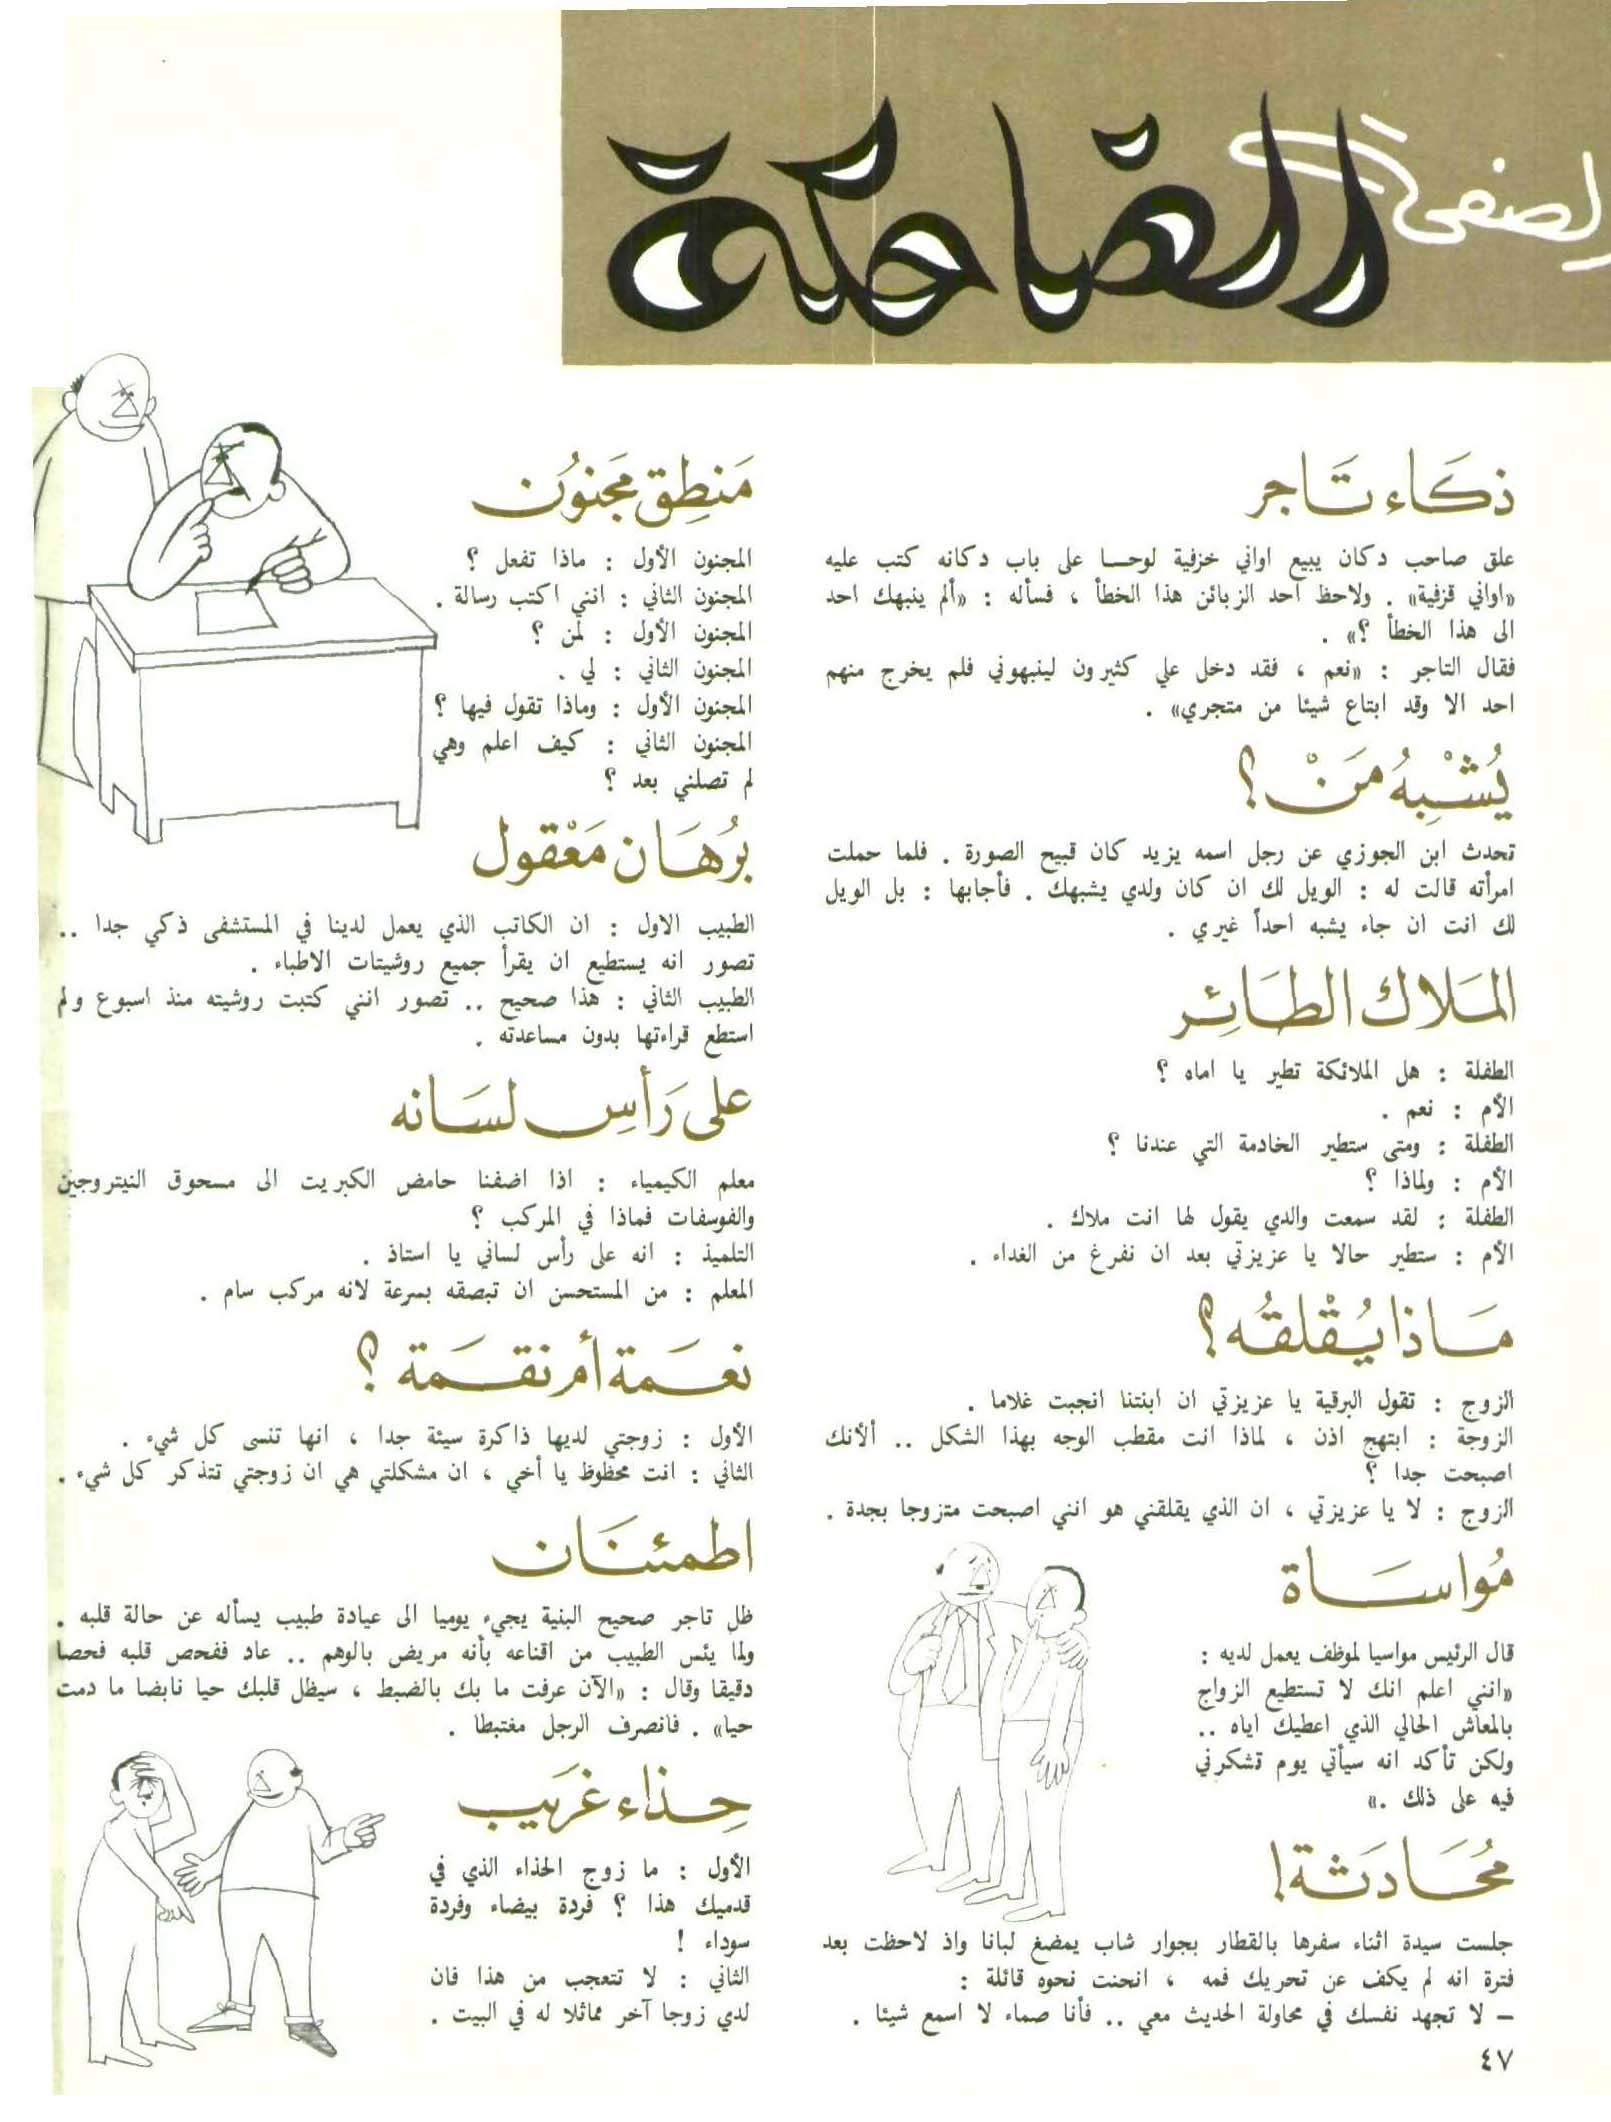 الصفحة
الضاحكة
ذكَاء تَاجر
علق صاحب دكان يبيع اواني خزفية لوحا على باب دكانه كتب عليه
«اواني قزفية» . ولاحظ احد الزبائن هذا الخطأ ، فسأله : «ألم ينبهك احد
الى هذا الخطأ ؟» .
فقال التاجر : «نعم ، فقد دخل علي كثيرون لينبهوني فلم يخرج منهم
احد الا وقد ابتاع شيئا من متجري» .
يُشْبِهُ مَنْ ؟
تحدث ابن الجوزي عن رجل اسمه يزيد كان قبيح الصورة . فلما حملت
امرأته قالت له : الويل لك ان كان ولدي يشبهك . فأجابها : بل الويل
لك انت ان جاء يشبه احداً غيري .
المَلاك الطَائِر
الطفلة : هل الملائكة تطير يا اماه ؟
الأم : نعم .
الطفلة : ومتى ستطير الخادمة التي عندنا ؟
الأم : ولماذا ؟
الطفلة : لقد سمعت والدي يقول لها انت ملاك .
الأم : ستطير حالا يا عزيزتي بعد ان نفرغ من الغداء .
مَاذا يُقْلقُه ؟
الزوج : تقول البرقية يا عزيزتي ان ابنتنا انجبت غلاما .
الزوجة : ابتهج اذن ، لماذا انت مقطب الوجه بهذا الشكل .. ألأنك
اصبحت جدا ؟
الزوج : لا يا عزيزتي ، ان الذي يقلقني هو انني اصبحت متزوجا بجدة .
مُواسَاة
قال الرئيس مواسيا لموظف يعمل لديه :
«انني اعلم انك لا تستطيع الزواج
بالمعاش الحالي الذي اعطيك اياه ..
ولكن تأكد انه سيأتي يوم تشكرني
فيه على ذلك .»
مُحَادَثة !
جلست سيدة اثناء سفرها بالقطار بجوار شاب يمضغ لبانا واذ لاحظت بعد
فترة انه لم يكف عن تحريك فمه ، انحنت نحوه قائلة :
– لا تجهد نفسك في محاولة الحديث معي .. فأنا صماء لا اسمع شيئا .
٤٧
مَنطِق مَجنوُن
المجنون الأول : ماذا تفعل ؟
المجنون الثاني : انني اكتب رسالة .
المجنون الأول : لمن ؟
المجنون الثاني : لي .
المجنون الأول : وماذا تقول فيها ؟
المجنون الثاني : كيف اعلم وهي
لم تصلني بعد ؟
بُرهَان مَعْقول
الطبيب الاول : ان الكاتب الذي يعمل لدينا في المستشفى ذكي جدا ..
تصور انه يستطيع ان يقرأ جميع روشيتات الاطباء .
الطبيب الثاني : هذا صحيح .. تصور انني كتبت روشيته منذ اسبوع ولم
استطع قراءتها بدون مساعدته .
على رَأسِ لسَانه
معلم الكيمياء : اذا اضفنا حامض الكبريت الى مسحوق النيتروجين
والفوسفات فماذا في المركب ؟
التلميذ : انه على رأس لساني يا استاذ .
المعلم : من المستحسن ان تبصقه بسرعة لانه مركب سام .
نعَمة أم نقَمة ؟
الأول : زوجتي لديها ذاكرة سيئة جدا ، انها تنسى كل شيء .
الثاني : انت محظوظ يا أخي ، ان مشكلتي هي ان زوجتي تتذكر كل شيء .
اطمئنَان
ظل تاجر صحيح البنية يجيء يوميا الى عيادة طبيب يسأله عن حالة قلبه .
ولما يئس الطبيب من اقناعه بأنه مريض بالوهم .. عاد ففحص قلبه فحصا
دقيقا وقال : «الآن عرفت ما بك بالضبط ، سيظل قلبك حيا نابضا ما دمت
حيا» . فانصرف الرجل مغتبطا .
حِذاء غَريب
الأول : ما زوج الحذاء الذي في
قدميك هذا ؟ فردة بيضاء وفردة
سوداء !
الثاني : لا تتعجب من هذا فان
لدي زوجا آخر مماثلا له في البيت .